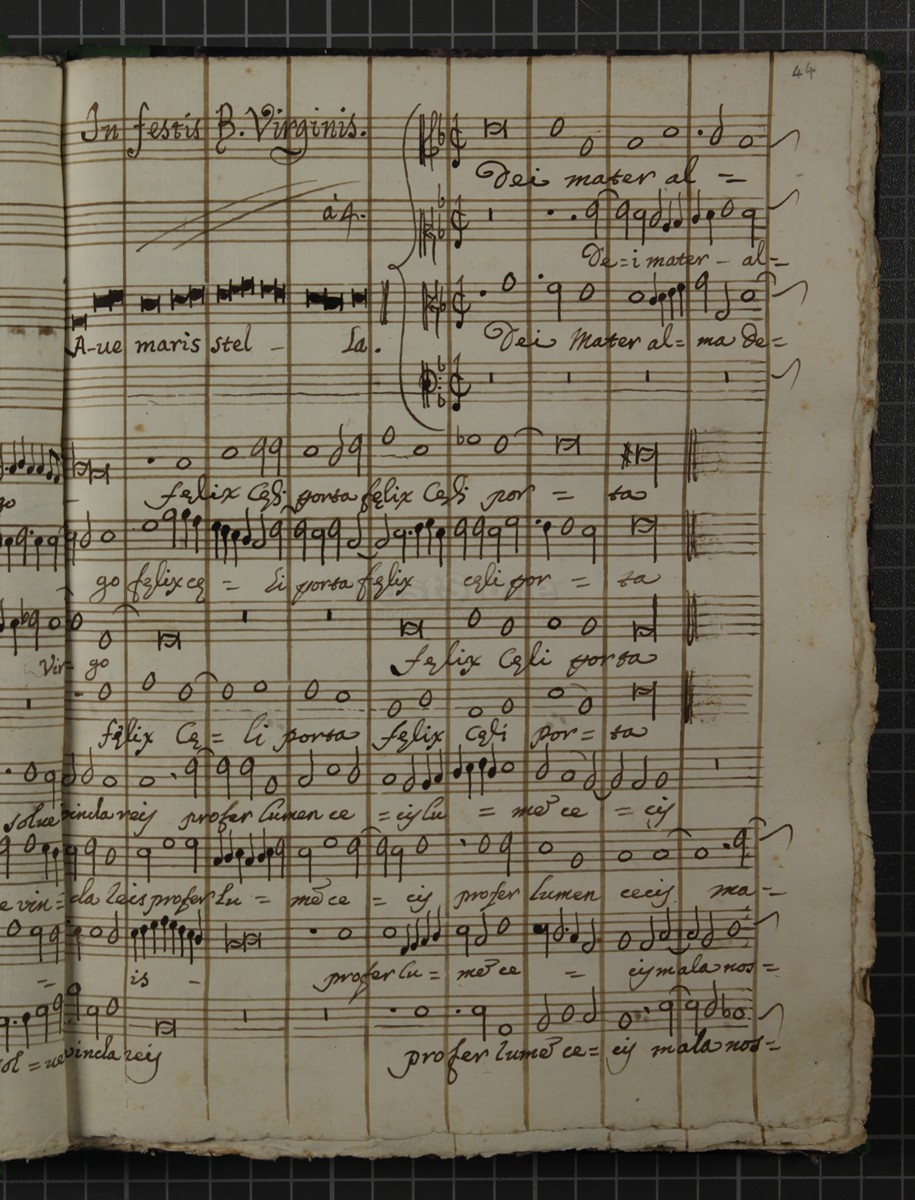 44
In festis B. Virginis.
Dei mater al =
à 4.
De = i mater - al =
A-ue maris stel - la.
Dei Mater al = ma de =
go -
fęlix Cęli porta fęlix Cęli por = ta
go fęlix cę = li porta fęlix cęli por = ta
Vir- go
fęlix Cęli porta
fęlix Cę = li porta fęlix Cęli por = ta
solue vincla reis profer lumen ce = cis lu = mē ce = cis
e vin = cla reis profer lu = mē ce = cis profer lumen cecis ma =
= is - profer lu = mē ce = cis mala nos =
sol = ue vincla reis profer lumē ce = cis mala nos =